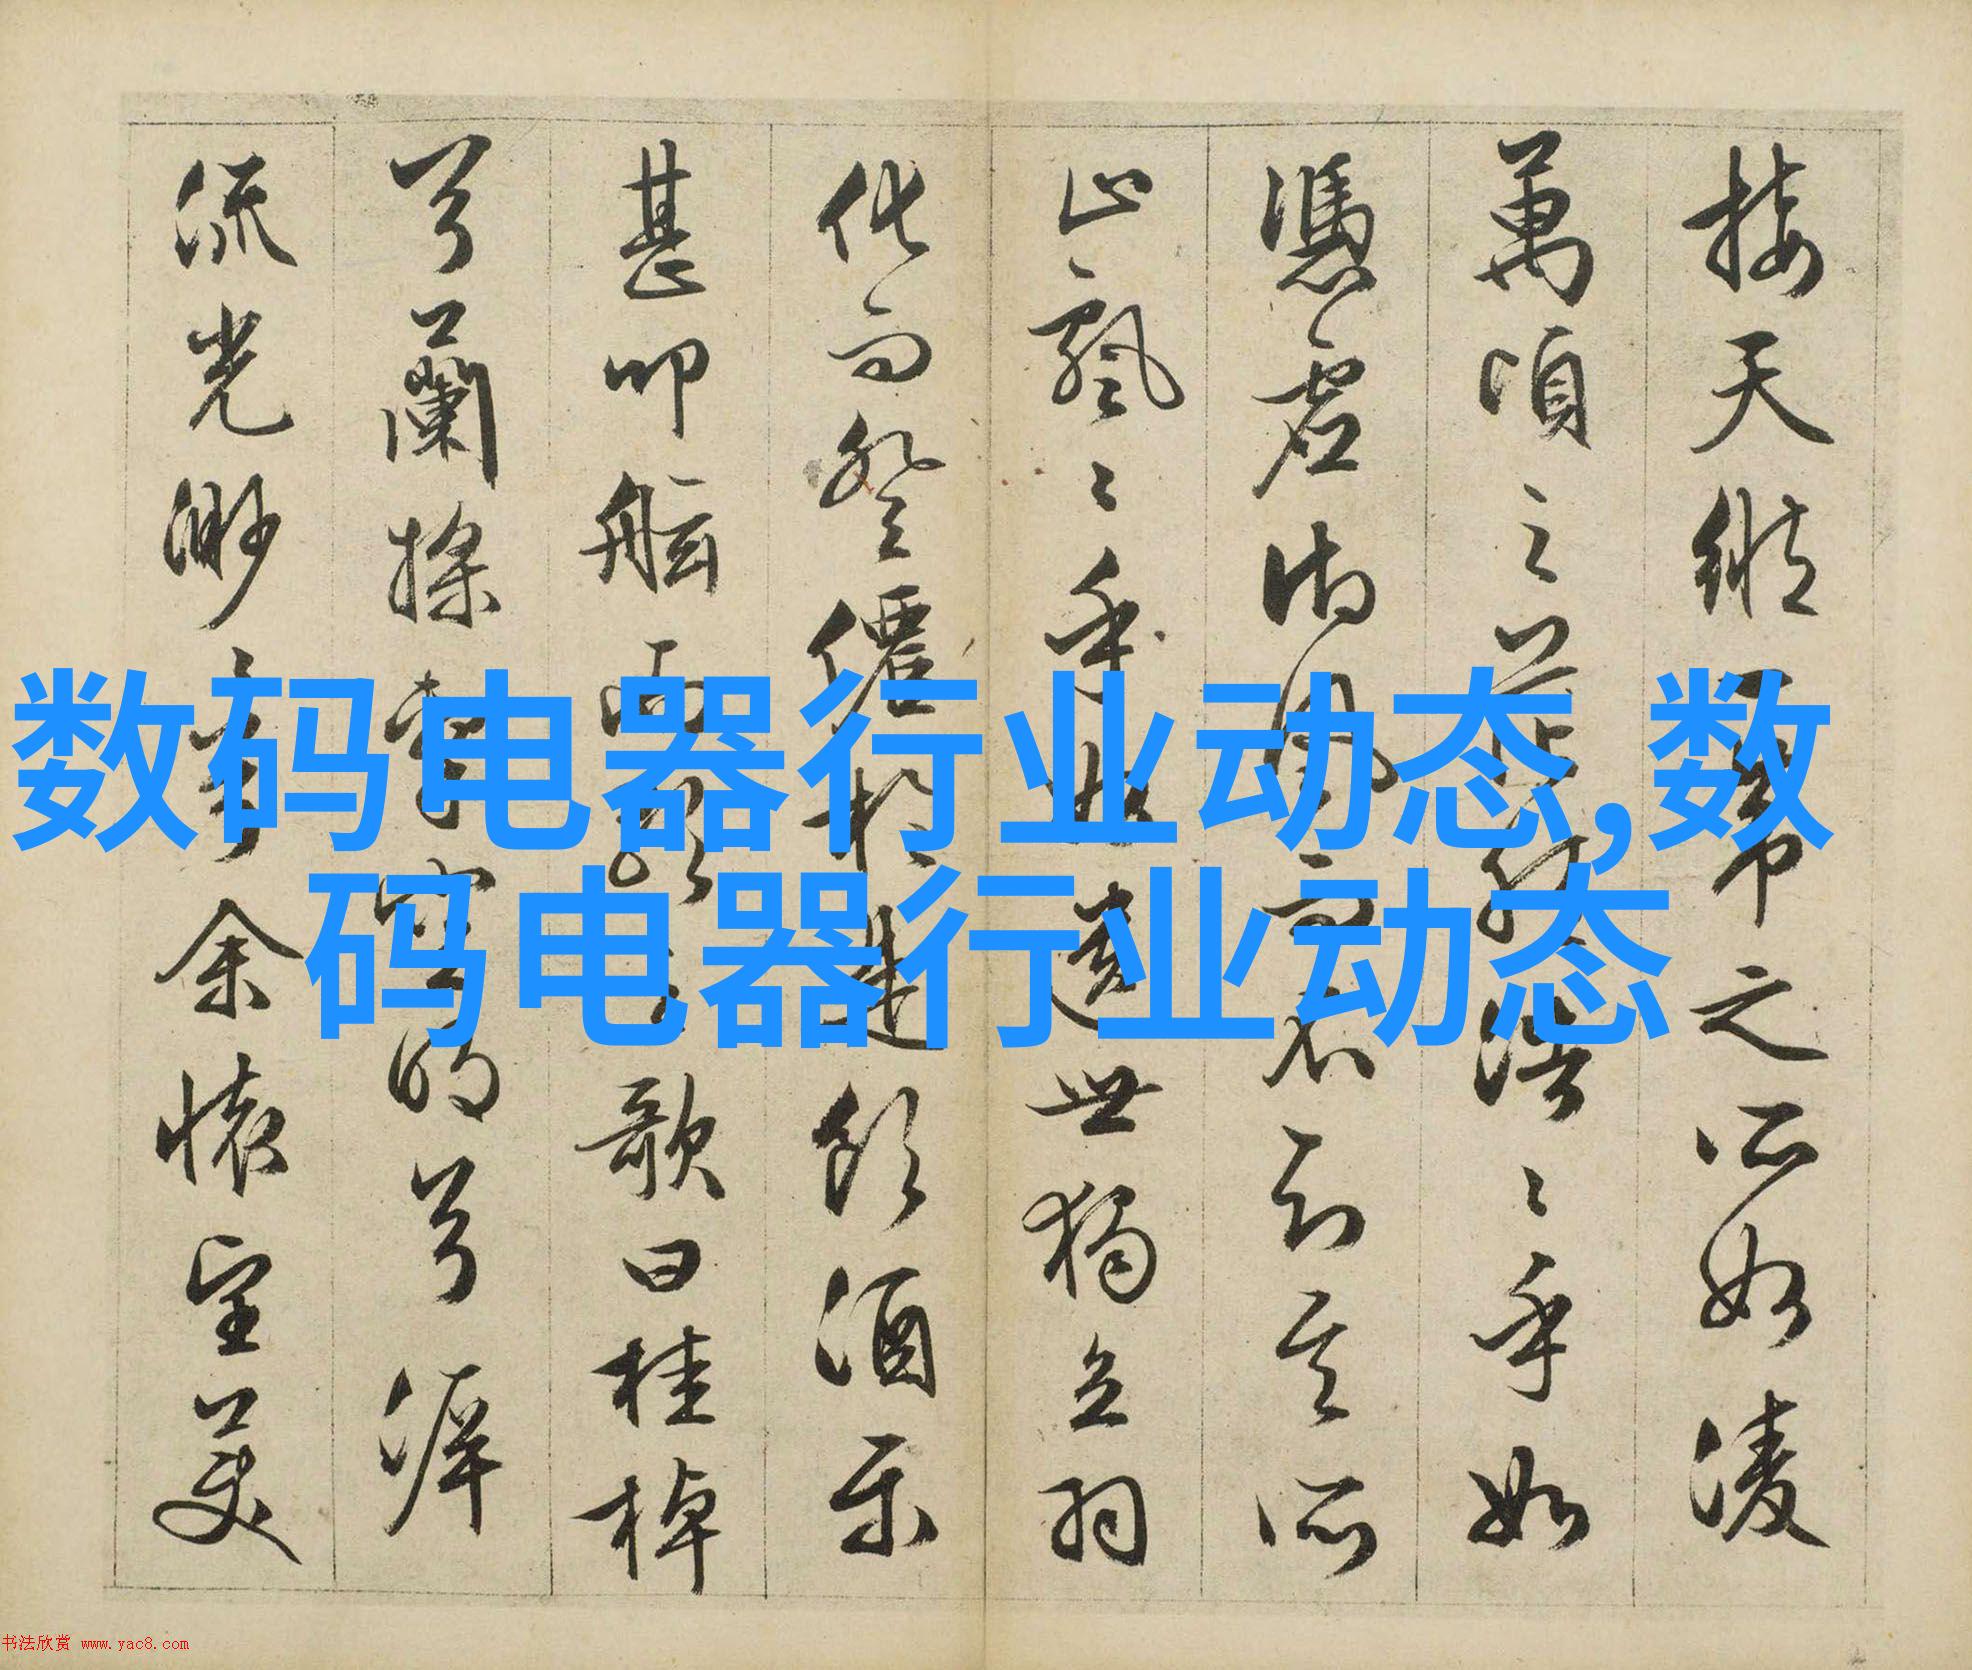 接天縱一葦之所如淩
萬頃之茫然浩〻乎如
憑虛御風而不知其所
止飄〻乎如遺世獨立羽
化而登僊於是飲酒樂
甚叩舷而歌之歌曰桂棹
兮蘭槳擊空明兮泝
流光渺乎余懷望美
数码电器行业动态,数
码电器行业动态
书法欣赏 www.yac8.com